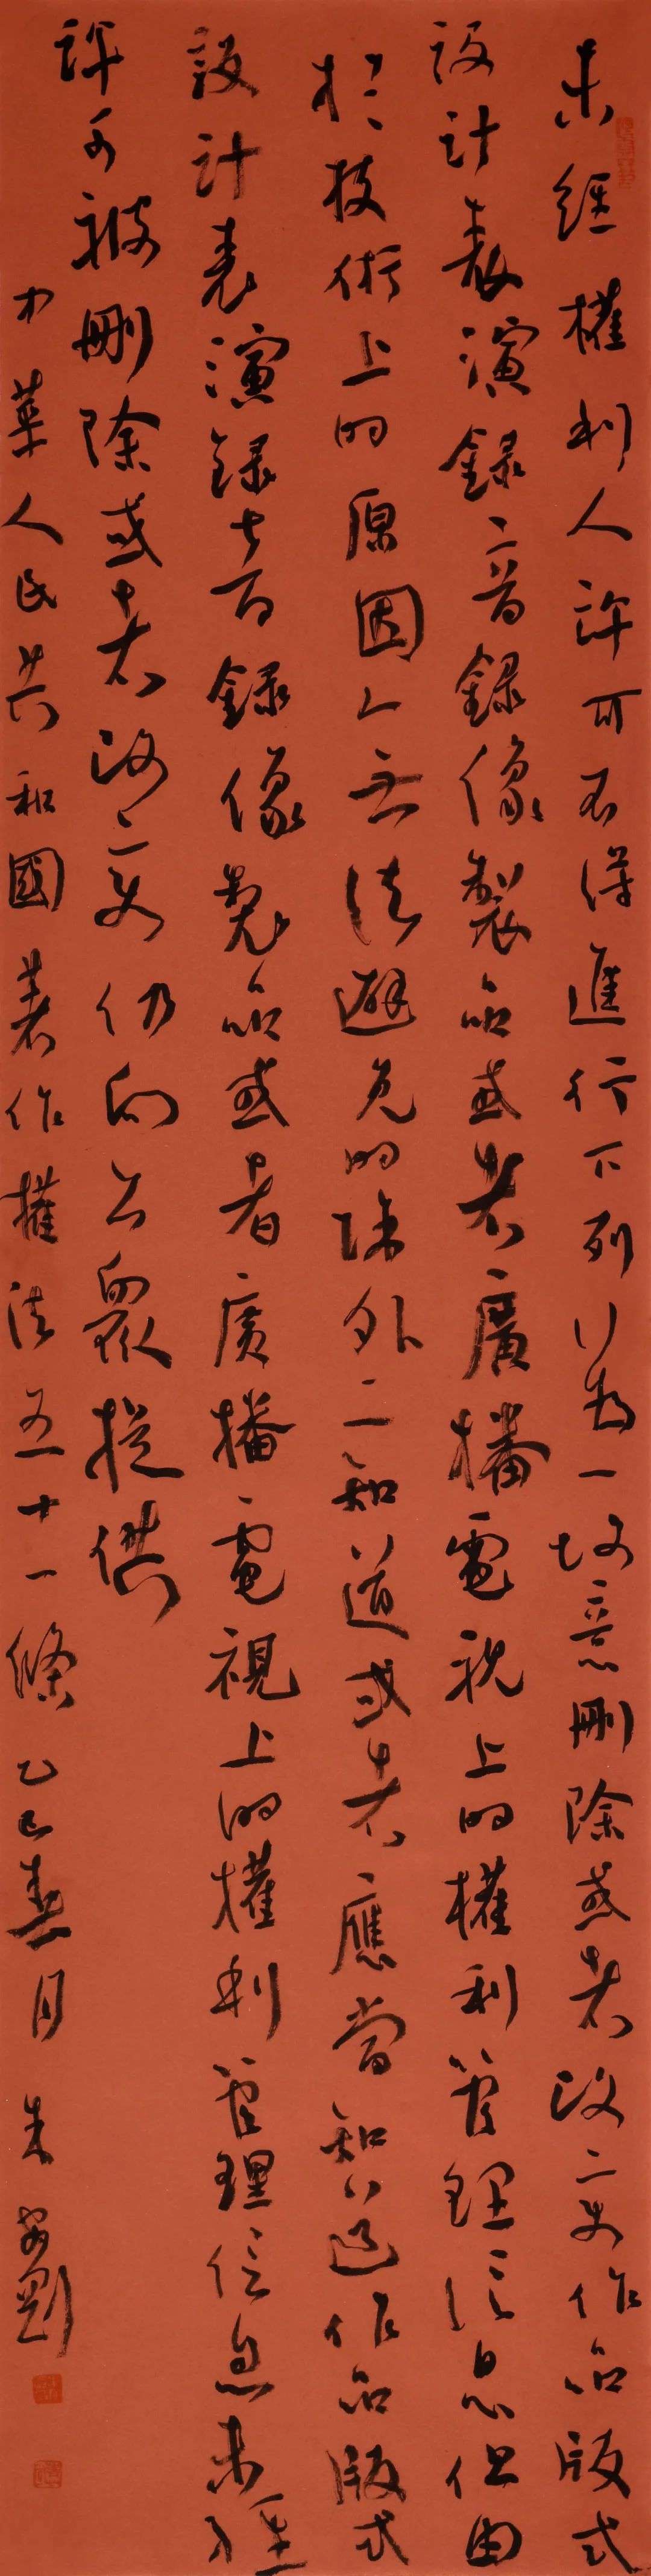 未經權利人許可不得進行下列行為一故意刪除或者改變作品版式
設計表演錄音錄像製品或者廣播電視上的權利管理信息但由
於技術上的原因無法避免的除外二知道或者應當知道作品版式
設計表演錄音錄像製品或者廣播電視上的權利管理信息未經
許可被刪除或者改變仍向公眾提供
中華人民共和國著作權法五十一條乙巳春月朱安剛